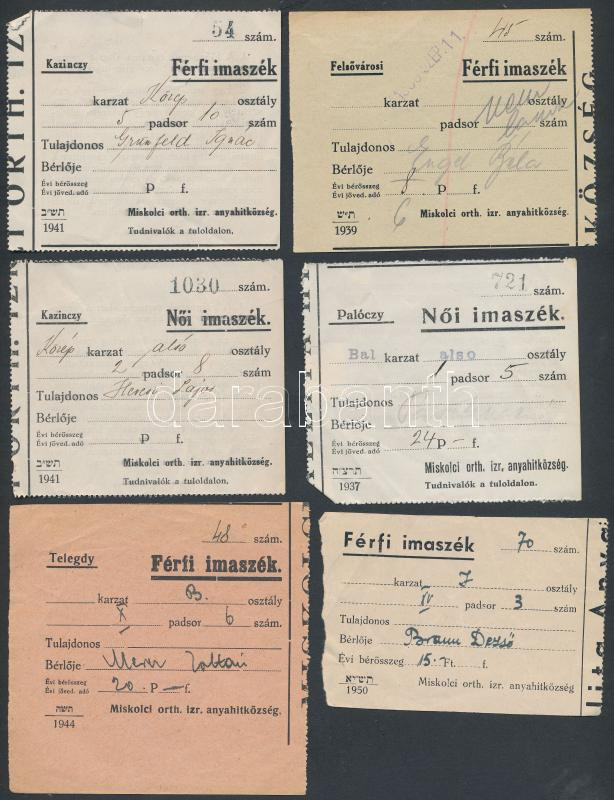 54 szám.
Kazinczy Férfi imaszék
karzat Közép osztály
5 padsor 10 szám
Tulajdonos Grünfeld Ignác
Bérlője
Évi bérösszeg
Évi jöved. adó P f.
תש״ב
1941 Miskolci orth. izr. anyahitközség.
Tudnivalók a tuloldalon.
ORTH. IZ
45 szám.
Felsővárosi Férfi imaszék
karzat osztály
padsor szám
Tulajdonos
Bérlője Engel Béla
Évi bérösszeg
Évi jöved. adó P f.
6
ת״ש
1939 Miskolci orth. izr. anyahitközség.
KÖZSÉG
1030 szám.
Kazinczy Női imaszék.
Közép karzat alsó osztály
2 padsor 8 szám
Tulajdonos Lajos
Bérlője
Évi bérösszeg
Évi jöved. adó P f.
תש״ב
1941 Miskolci orth. izr. anyahitközség.
Tudnivalók a tuloldalon.
721 szám.
Palóczy Női imaszék.
Bal karzat also osztály
1 padsor 5 szám
Tulajdonos
Bérlője
Évi bérösszeg
Évi jöved. adó 24 P – f.
תרצ״ח
1937 Miskolci orth. izr, anyahitközség.
Tudnivalók a tuloldalon.
darabanth
48 szám.
Telegdy Férfi imaszék.
karzat B. osztály
X padsor 6 szám
Tulajdonos
Bérlője Zoltán
Évi bérösszeg
Évi jöved. adó 20. P – f.
תשה
1944 Miskolci orth. izr. anyahitközség.
MISKOLC
Férfi imaszék 70 szám.
karzat J osztály
IV padsor 3 szám
Tulajdonos
Bérlője Braun Dezső
Évi bérösszeg 15. Ft. f.
תשי״א
1950 Miskolci orth. izr. anyahitközség
lita Anya